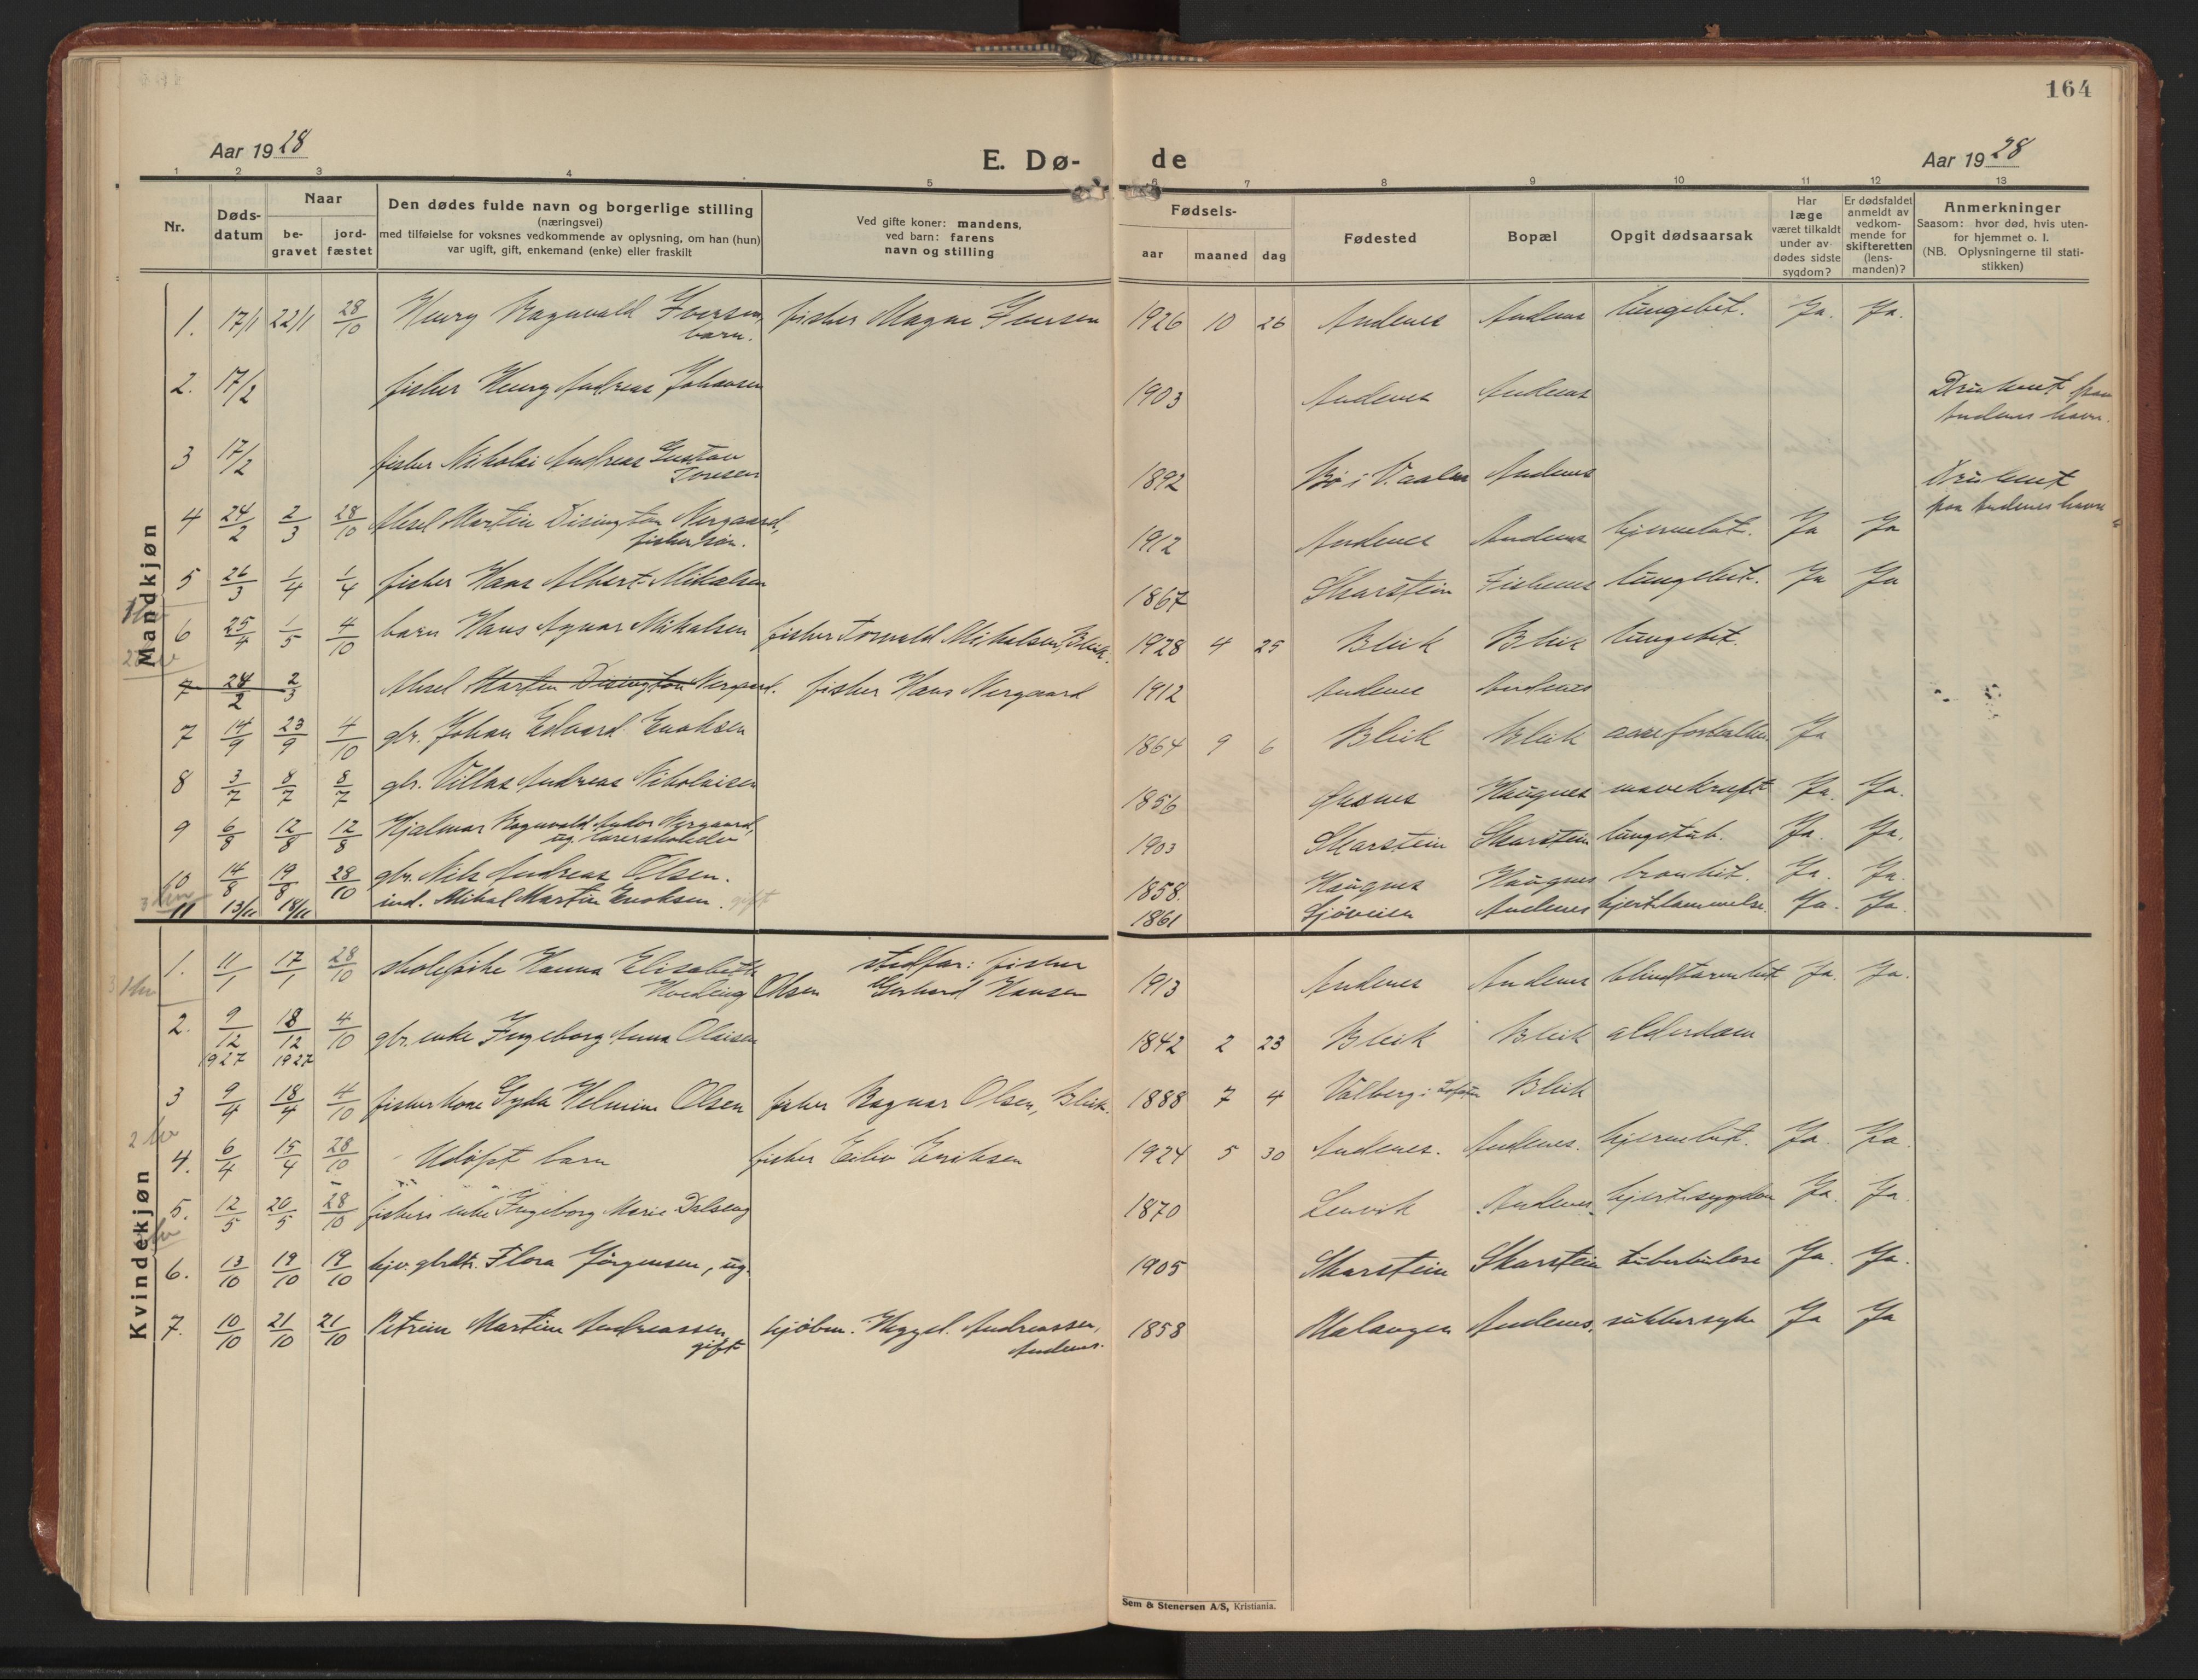 164
Aar 1928
E. Dø-
de
Aar 1928
1 2 3 4 5
6 7 8 9 10 11 12 13
Nr.
Døds-
datum
Naar
be-
gravet
jord-
fæstet
Den dødes fulde navn og borgerlige stilling
(næringsvei)
med tilføielse for voksnes vedkommende av oplysning, om han (hun)
var ugift, gift, enkemand (enke) eller fraskilt
Ved gifte koner: mandens,
ved barn: farens
navn og stilling
Fødsels-
aar
maaned
dag
Fødested
Bopæl
Opgit dødsaarsak
Har
læge
været tilkaldt
under av-
dødes sidste
sygdom?
Er dødsfaldet
anmeldt av
vedkom-
mende for
skifteretten
(lens-
manden)?
Anmerkninger
Saasom: hvor død, hvis uten-
for hjemmet o. l.
(NB. Oplysningerne til stati-
stikken)
Mandkjøn
1. 17/1 22/1 28/10 Henry Ragnvald Iversen, fisker Magne Iversen 1926 10 26 Andenes Andenes lungebet. Ja. Ja.
barn.
2. 17/2 fisker Henry Andreas Johansen 1903 Andenes Andenes Druknet paa
Andenes havn.
3 17/2 fisker Nikolai Andreas Gustav
1892 Bø i V.aalen Andenes Druknet
paa Andenes havn
4 24/2 2/3 28/10 Aksel Martin Disington Nergaard, 1912 Andenes Andenes hjernebet. Ja Ja
fiskersøn.
5 26/3 1/4 1/4 fisker Hans Albert Mikalsen 1867 Skarstein Fiskenes lungebet. Ja Ja
6 25/4 1/5 4/10 barn Hans Agnar Mikalsen fisker Torvald Mikalsen, Bleik. 1928 4 25 Bleik Bleik lungebet.
7 24/2 2/3 Aksel Martin Disington Nergaard. fisker Hans Nergaard 1912 Andenes Andenes
7 14/9 23/9 4/10 gbr. Johan Edvard Enoksen 1864 9 6 Bleik Bleik aareforkalkn. Ja
8 3/7 8/7 8/7 gbr. Villas Andreas Nikolaisen 1856 Haugnes mavekræft Ja. Ja.
9 6/8 12/8 12/8 Hjalmar Ragnvald Andor Nergaard, 1903 Skarstein Skarstein lungetub. Ja. Ja.
ug. lærerskoleelev
10 14/8 19/8 28/10 gbr. Nils Andreas Olsen. 1858. Haugnes Haugnes bronkit. Ja. Ja.
11 13/11 18/11 ind. Mikal Martin Enoksen. gift 1861 Sjøveien Andenes hjertelammelse. Ja. Ja.
Kvindekjøn
1. 11/1 17/1 28/10 skolepike Hanna Elisabeth stedfar: fisker
Hveding Olsen Gerhard Hansen 1913 Andenes Andenes blindtarmbet Ja. Ja.
2. 9/12 1927 18/12 1927 4/10 gbr. enke Ingeborg Anna Olaisen 1842 2 23 Bleik Bleik alderdom
3 9/4 18/4 4/10 fiskerkone Gyda Helmine Olsen fisker Ragnar Olsen, Bleik. 1888 7 4 Valberg i Lofoten Bleik
4. 6/4 15/4 28/10 Udøpt barn fisker Eiliv Eriksen 1924 5 30 Andenes. Andenes. hjernebet. Ja. Ja.
5. 12/5 20/5 28/10 fiskers enke Ingeborg Marie Dalseng 1870 Lenvik Andenes hjertesygdom Ja. Ja.
6. 13/10 19/10 19/10 hjv. gbrdtr. Flora Jørgensen, ug. 1905 Skarstein Skarstein tuberkulose Ja. Ja.
7. 10/10 21/10 21/10 Petrine Martine Andreassen, kjøbm. Andreassen, 1858 Malangen Andenes. sukkersyke Ja Ja
gift Andenes.
Sem & Stenersen A/S, Kristiania.